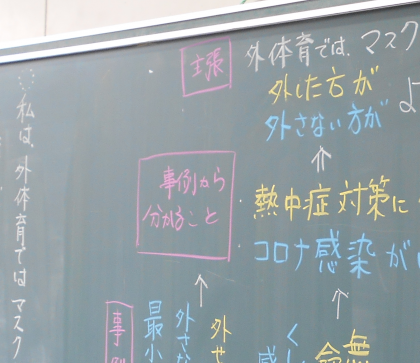 主張
外体育では、マスク
外した方が
外さない方が
よ
事例から
分かること
熱中症対策に
コロナ感染が
私は、外体育ではマスク
事
最小
外さな
外せ
感
く
無
命